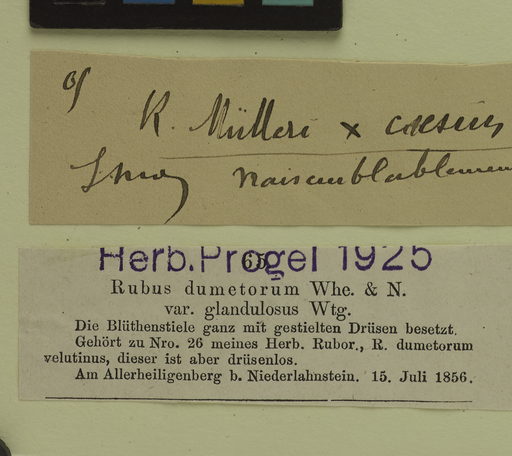 of
R. Mülleri × cæsius
vraisemblablement
Herb.Progel 1925
65.
Rubus dumetorum Whe. & N.
var. glandulosus Wtg.
Die Blüthenstiele ganz mit gestielten Drüsen besetzt.
Gehört zu Nro. 26 meines Herb. Rubor., R. dumetorum
velutinus, dieser ist aber drüsenlos.
Am Allerheiligenberg b. Niederlahnstein. 15. Juli 1856.